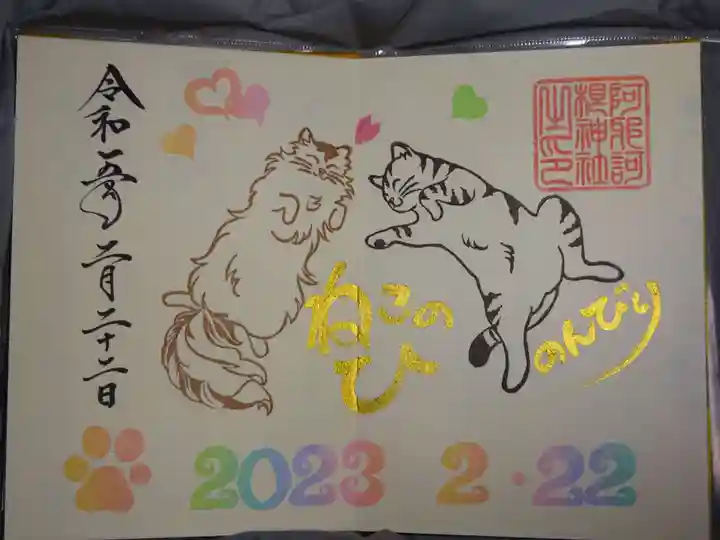 阿邪訶
根神社
之印
令和五年二月二十二日
ねこの
ひ
のんびり
2023 2・22